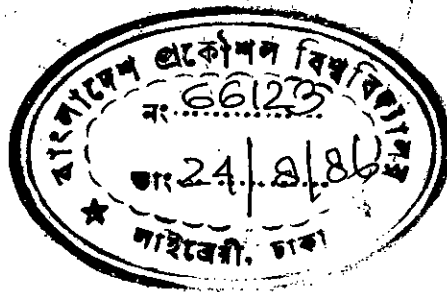 বাংলাদেশ প্রকৌশল বিশ্ববিদ্যালয়
নং 66123
তাং 24/8/86
★ লাইব্রেরী, ঢাকা